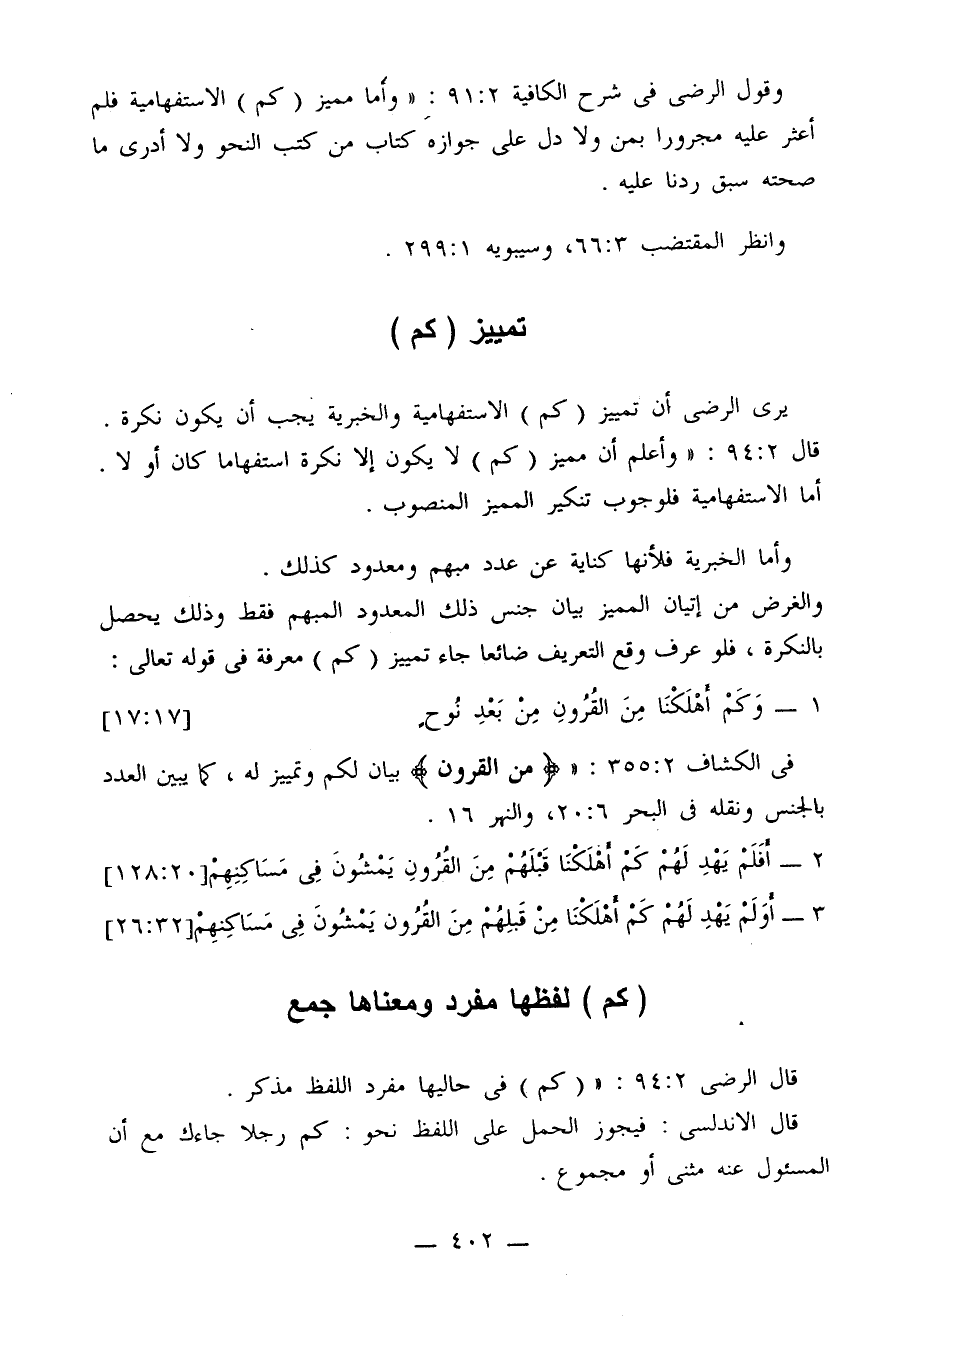 وقول الرضى فى شرح الكافية ٩١:٢ : « وأما مميز ( كم ) الاستفهامية فلم
أعثر عليه مجرورا بمن ولا دل على جوازه كتاب من كتب النحو ولا أدرى ما
صحته سبق ردنا عليه .
وانظر المقتضب ٦٦:٣، وسيبويه ٢٩٩:١ .
تمييز ( كم )
يرى الرضى أن تمييز ( كم ) الاستفهامية والخبرية يجب أن يكون نكرة .
قال ٩٤:٢ : « وأعلم أن مميز ( كم ) لا يكون إلا نكرة استفهاما كان أو لا .
أما الاستفهامية فلوجوب تنكير المميز المنصوب .
وأما الخبرية فلأنها كناية عن عدد مبهم ومعدود كذلك .
والغرض من إتيان المميز بيان جنس ذلك المعدود المبهم فقط وذلك يحصل
بالنكرة ، فلو عرف وقع التعريف ضائعا جاء تمييز ( كم ) معرفة فى قوله تعالى :
١ ــ وَكَمْ أَهْلَكْنَا مِنَ القُرُونِ مِنْ بَعْدِ نُوحٍ [١٧:١٧]
فى الكشاف ٣٥٥:٢ : « ﴿ من القرون ﴾ بيان لكم وتمييز له ، كما يبين العدد
بالجنس ونقله فى البحر ٢٠:٦، والنهر ١٦ .
٢ ــ أَفَلَمْ يَهْدِ لَهُمْ كَمْ أَهْلَكْنَا قَبْلَهُمْ مِنَ القُرُونِ يَمْشُونَ فِى مَسَاكِنِهِمْ[١٢٨:٢٠]
٣ ــ أَوَلَمْ يَهْدِ لَهُمْ كَمْ أَهْلَكْنَا مِنْ قَبلِهُمْ مِنَ القُرُونِ يَمْشُونَ فِى مَسَاكِنِهِمْ[٢٦:٣٢]
( كم ) لفظها مفرد ومعناها جمع
قال الرضى ٩٤:٢ : « ( كم ) فى حاليها مفرد اللفظ مذكر .
قال الاندلسى : فيجوز الحمل على اللفظ نحو : كم رجلا جاءك مع أن
المسئول عنه مثنى أو مجموع .
ــ ٤٠٢ ــ